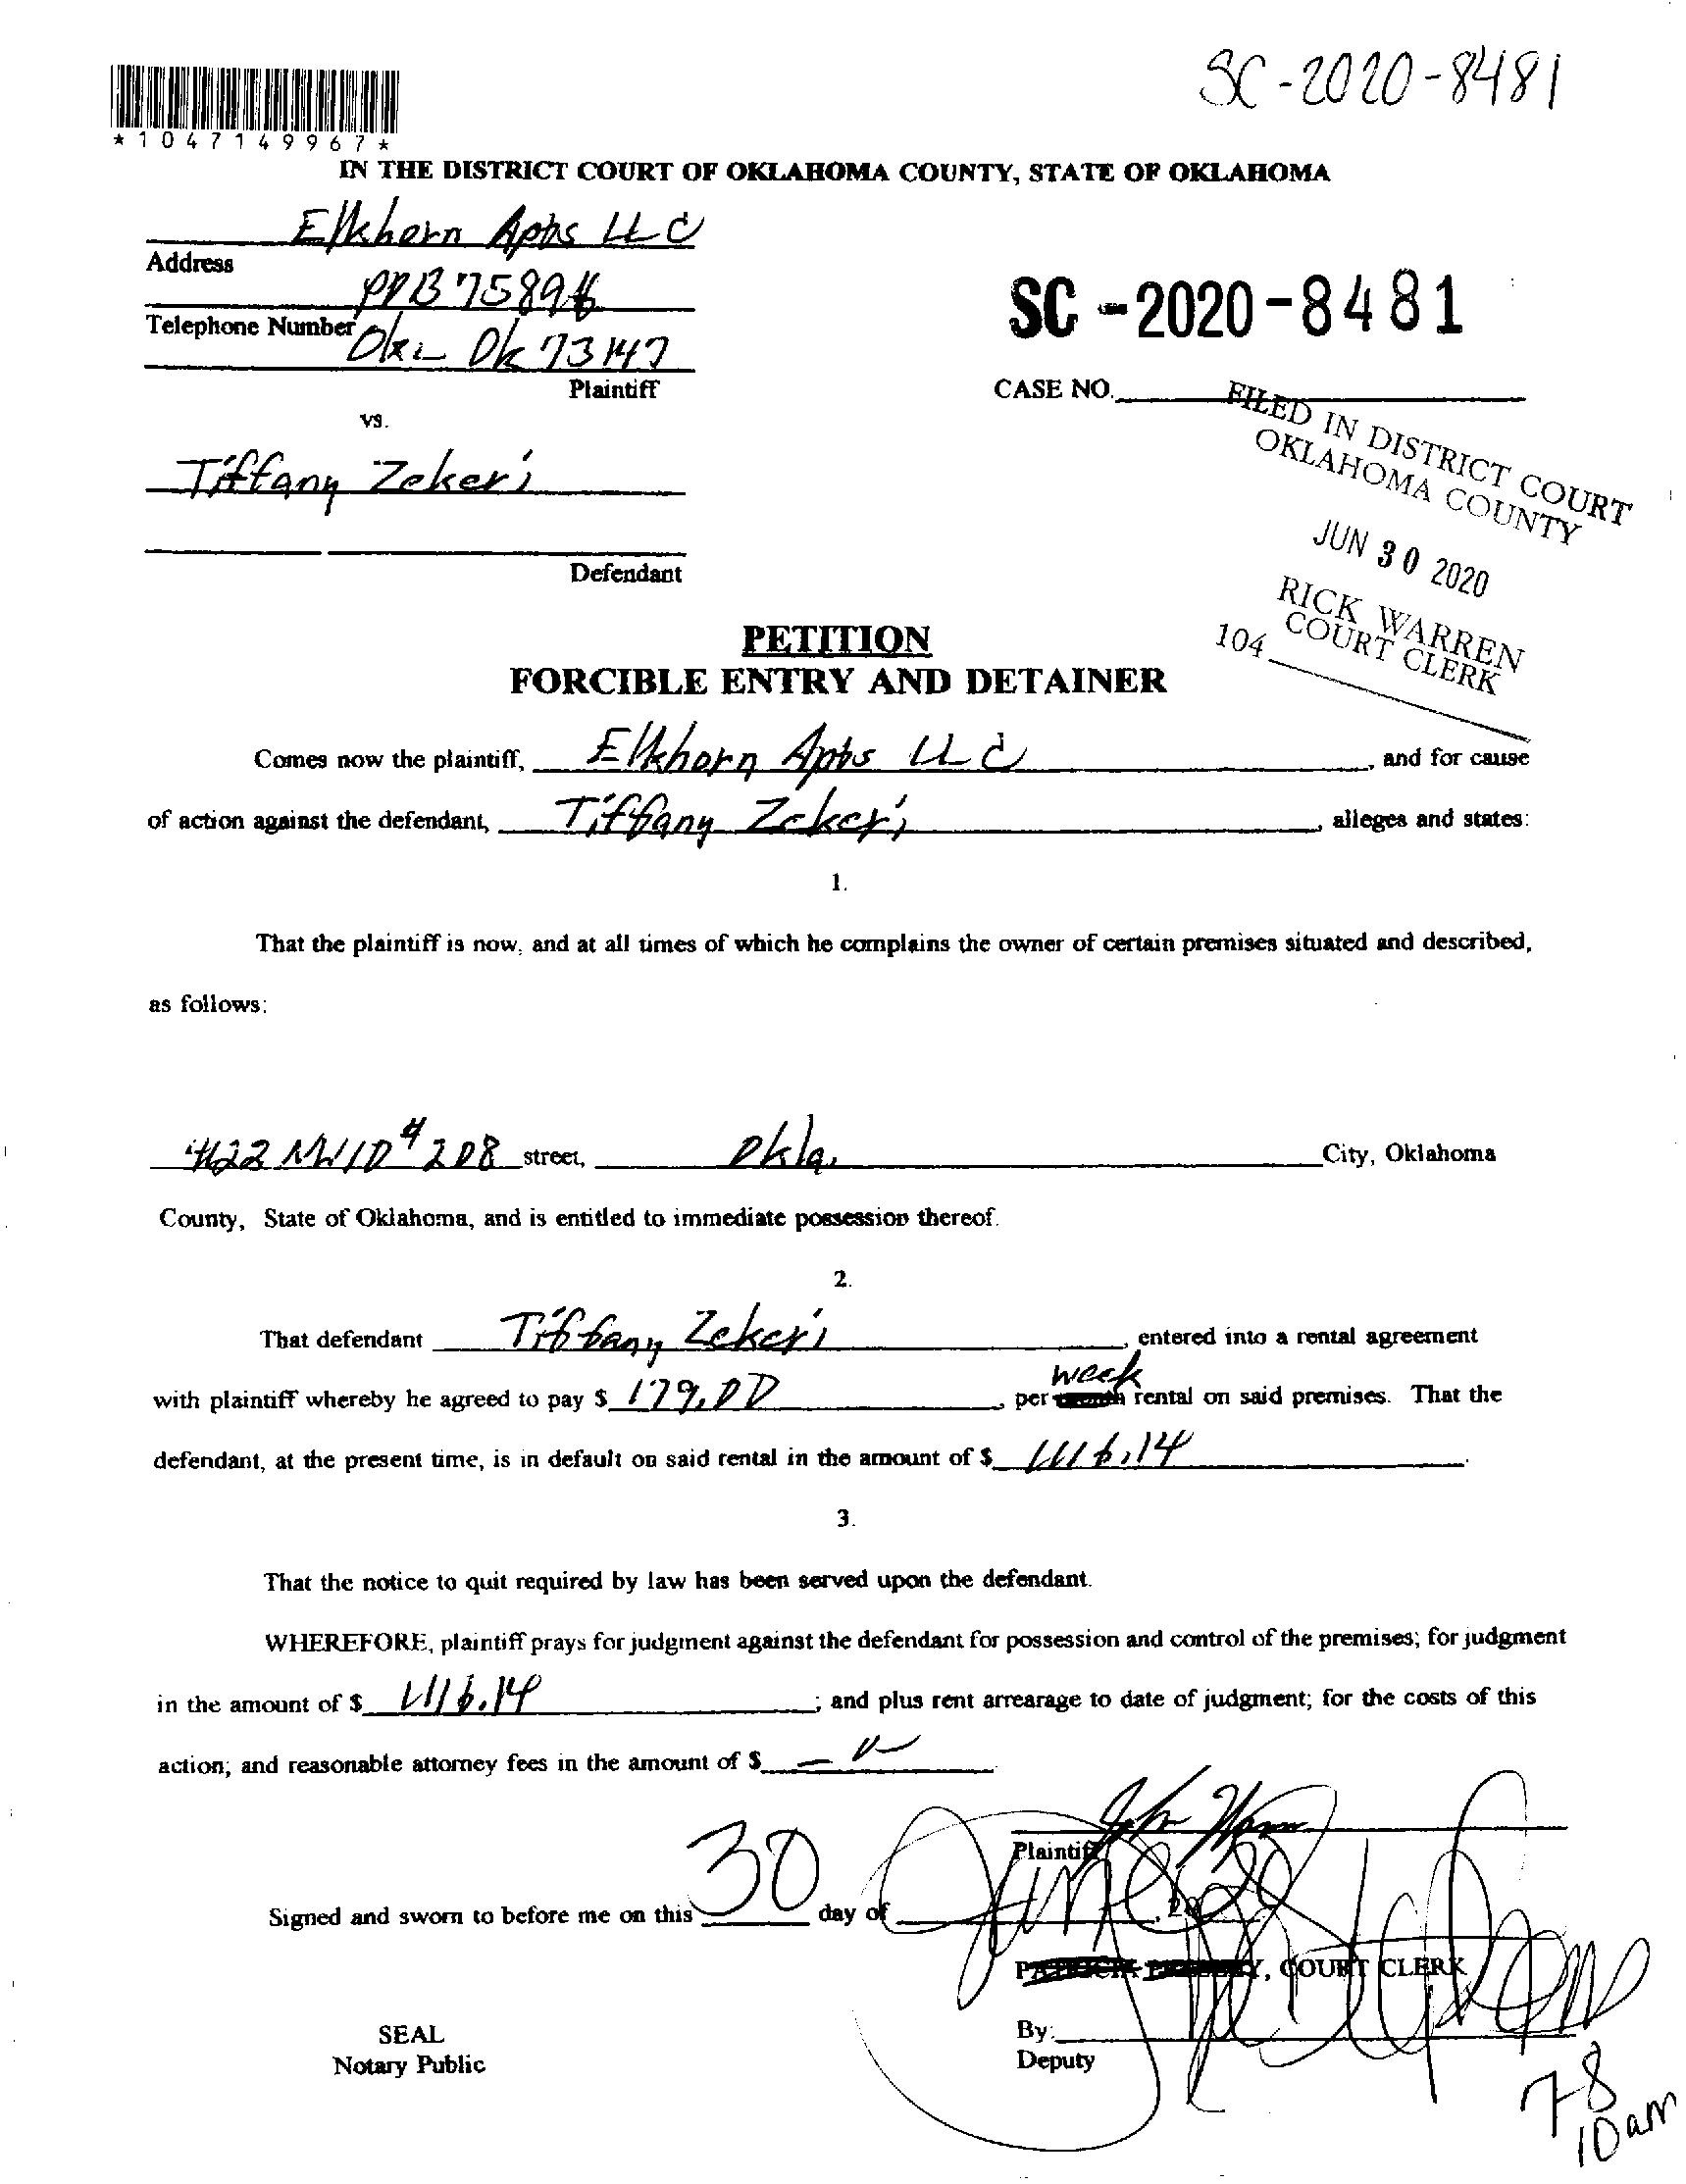 SC-2020-8481
*1047149967*
IN THE DISTRICT COURT OF OKLAHOMA COUNTY, STATE OF OKLAHOMA
Elkhorn Apts LLC
Address
75894
Telephone Number
Ok 73147
Plaintiff
SC-2020-8481
CASE NO.
vs.
Tiffany Zekeri
Defendant
FILED IN DISTRICT COURT
OKLAHOMA COUNTY
JUN 30 2020
RICK WARREN
COURT CLERK
104
PETITION
FORCIBLE ENTRY AND DETAINER
Comes now the plaintiff, Elkhorn Apts LLC, and for cause
of action against the defendant, Tiffany Zekeri, alleges and states:
1.
That the plaintiff is now, and at all times of which he complains the owner of certain premises situated and described,
as follows:
4122 NW10 #208 street, Okla. City, Oklahoma
County, State of Oklahoma, and is entitled to immediate possession thereof.
2.
That defendant Tiffany Zekeri, entered into a rental agreement
with plaintiff whereby he agreed to pay $ 179.00, per week rental on said premises. That the
defendant, at the present time, is in default on said rental in the amount of $ 1116.14.
3.
That the notice to quit required by law has been served upon the defendant.
WHEREFORE, plaintiff prays for judgment against the defendant for possession and control of the premises; for judgment
in the amount of $ 1116.14; and plus rent arrearage to date of judgment; for the costs of this
action; and reasonable attorney fees in the amount of $
Plaintiff
Signed and sworn to before me on this 30 day of June, 2020
COURT CLERK
By:
Deputy
SEAL
Notary Public
7-8
10am